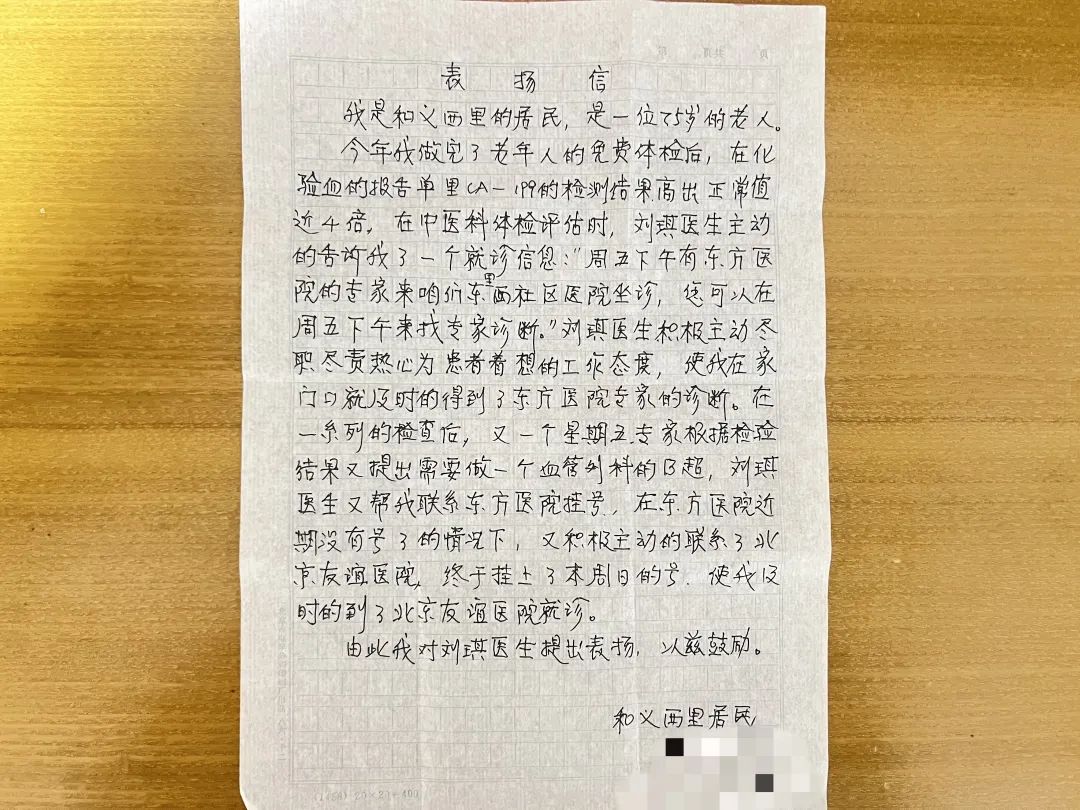 表 扬 信
我是和义西里的居民，是一位75岁的老人。
今年我做完了老年人的免费体检后，在化
验血的报告单里CA-199的检测结果高出正常值
近4倍，在中医科体检评估时，刘琪医生主动
的告诉我了一个就诊信息：“周五下午有东方医
院的专家来咱们东里西社区医院坐诊，您可以在
周五下午来找专家诊断。”刘琪医生积极主动尽
职尽责热心为患者着想的工作态度，使我在家
门口就及时的得到了东方医院专家的诊断。在
一系列的检查后，又一个星期五专家根据检验
结果又提出需要做一个血管外科的B超，刘琪
医生又帮我联系东方医院挂号，在东方医院近
期没有号了的情况下，又积极主动的联系了北
京友谊医院，终于挂上了本周日的号．使我及
时的到了北京友谊医院就诊。
由此我对刘琪医生提出表扬，以兹鼓励。
和义西里居民